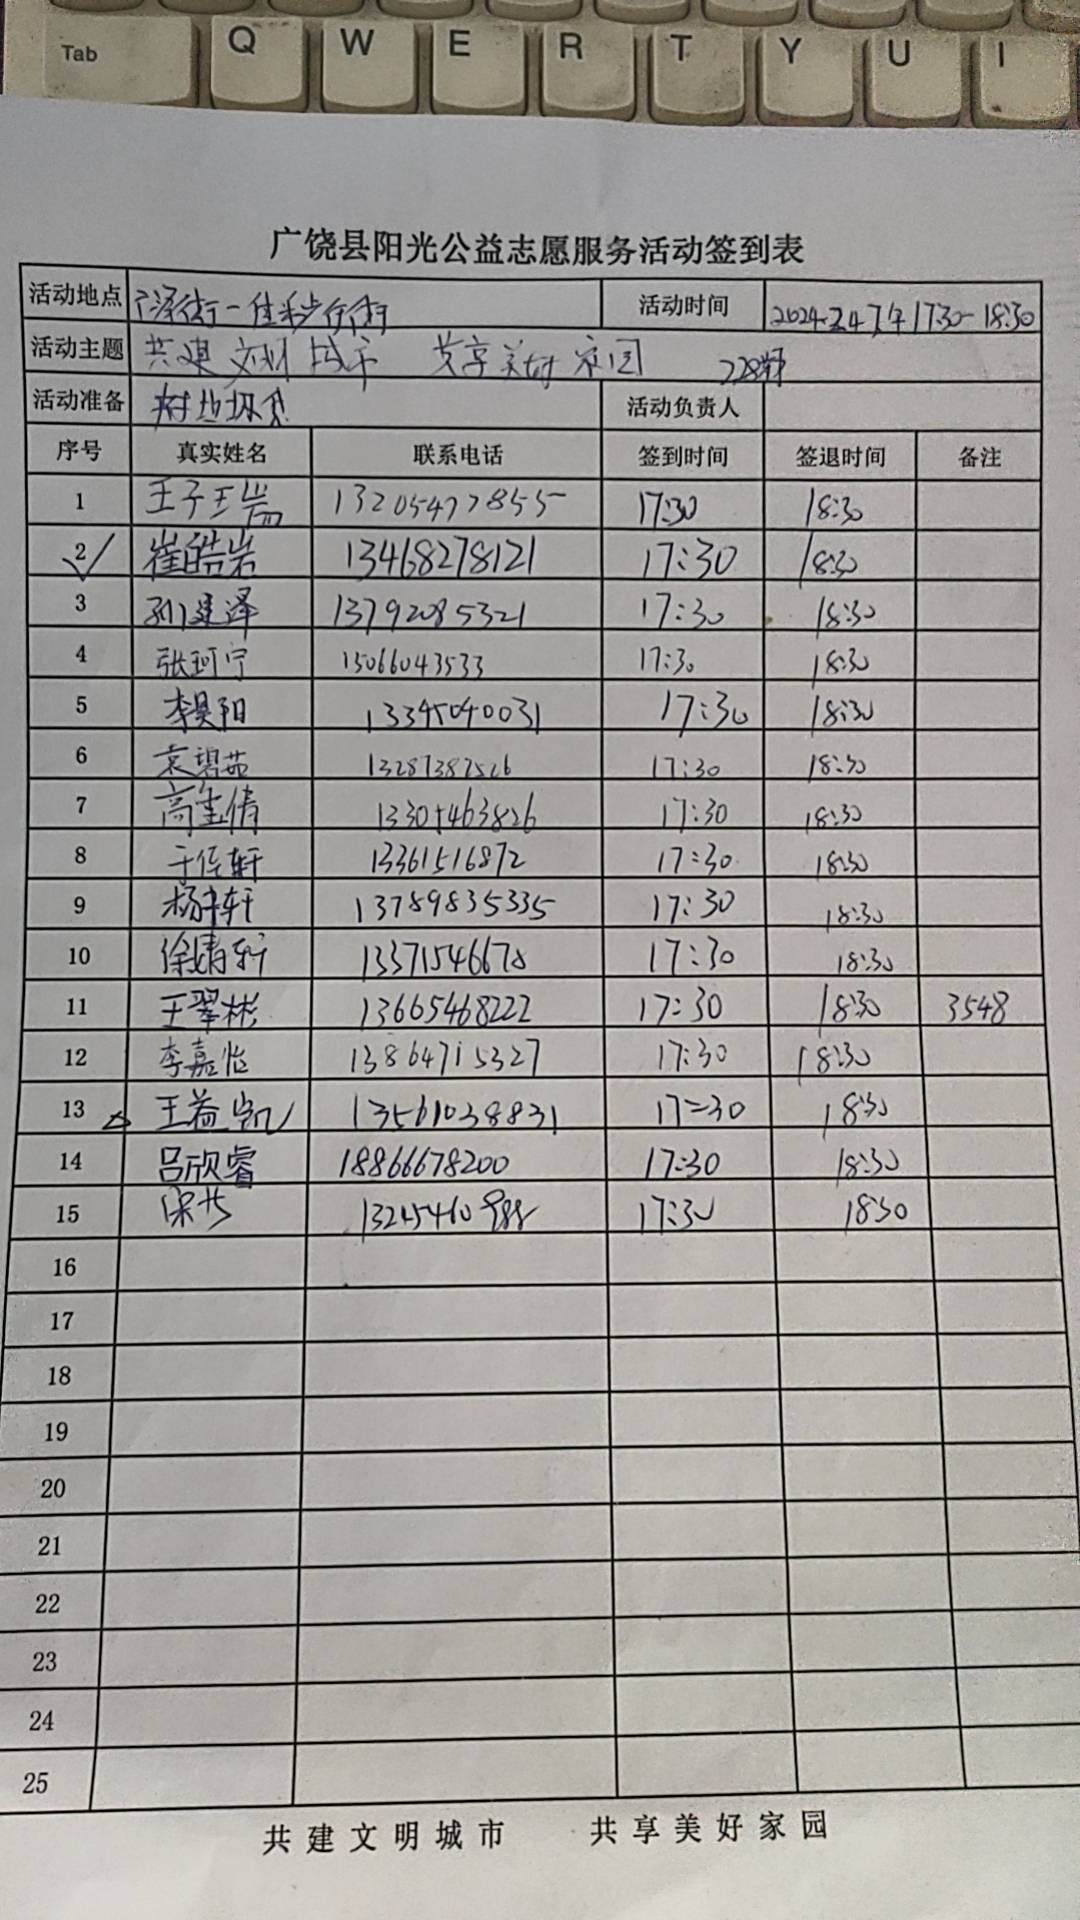 Tab Q W E R T Y U I
广饶县阳光公益志愿服务活动签到表
活动地点 步行街 活动时间 2024.2.4下午17:30-18:30
活动主题 共建文明城市 共享美好家园 228期
活动准备 活动负责人
序号 真实姓名 联系电话 签到时间 签退时间 备注
1 王子玉岩 13205477855 17:30 18:30
2 崔皓岩 13468278121 17:30 18:30
3 孙建泽 13792085321 17:30 18:30
4 张珂宁 15066043533 17:30 18:30
5 李昊阳 13345040031 17:30 18:30
6 袁碧茹 13287387526 17:30 18:30
7 高圭倩 13305463826 17:30 18:30
8 于佳轩 13361516872 17:30 18:30
9 杨轩 13789835335 17:30 18:30
10 徐婧轩 13371546678 17:30 18:30
11 王翠彬 13665468222 17:30 18:30 3548
12 李嘉怡 13864715327 17:30 18:30
13 王益凯 13561038831 17:30 18:30
14 吕欣睿 18866678200 17:30 18:30
15 13245460988 17:30 18:30
16
17
18
19
20
21
22
23
24
25
共建文明城市 共享美好家园